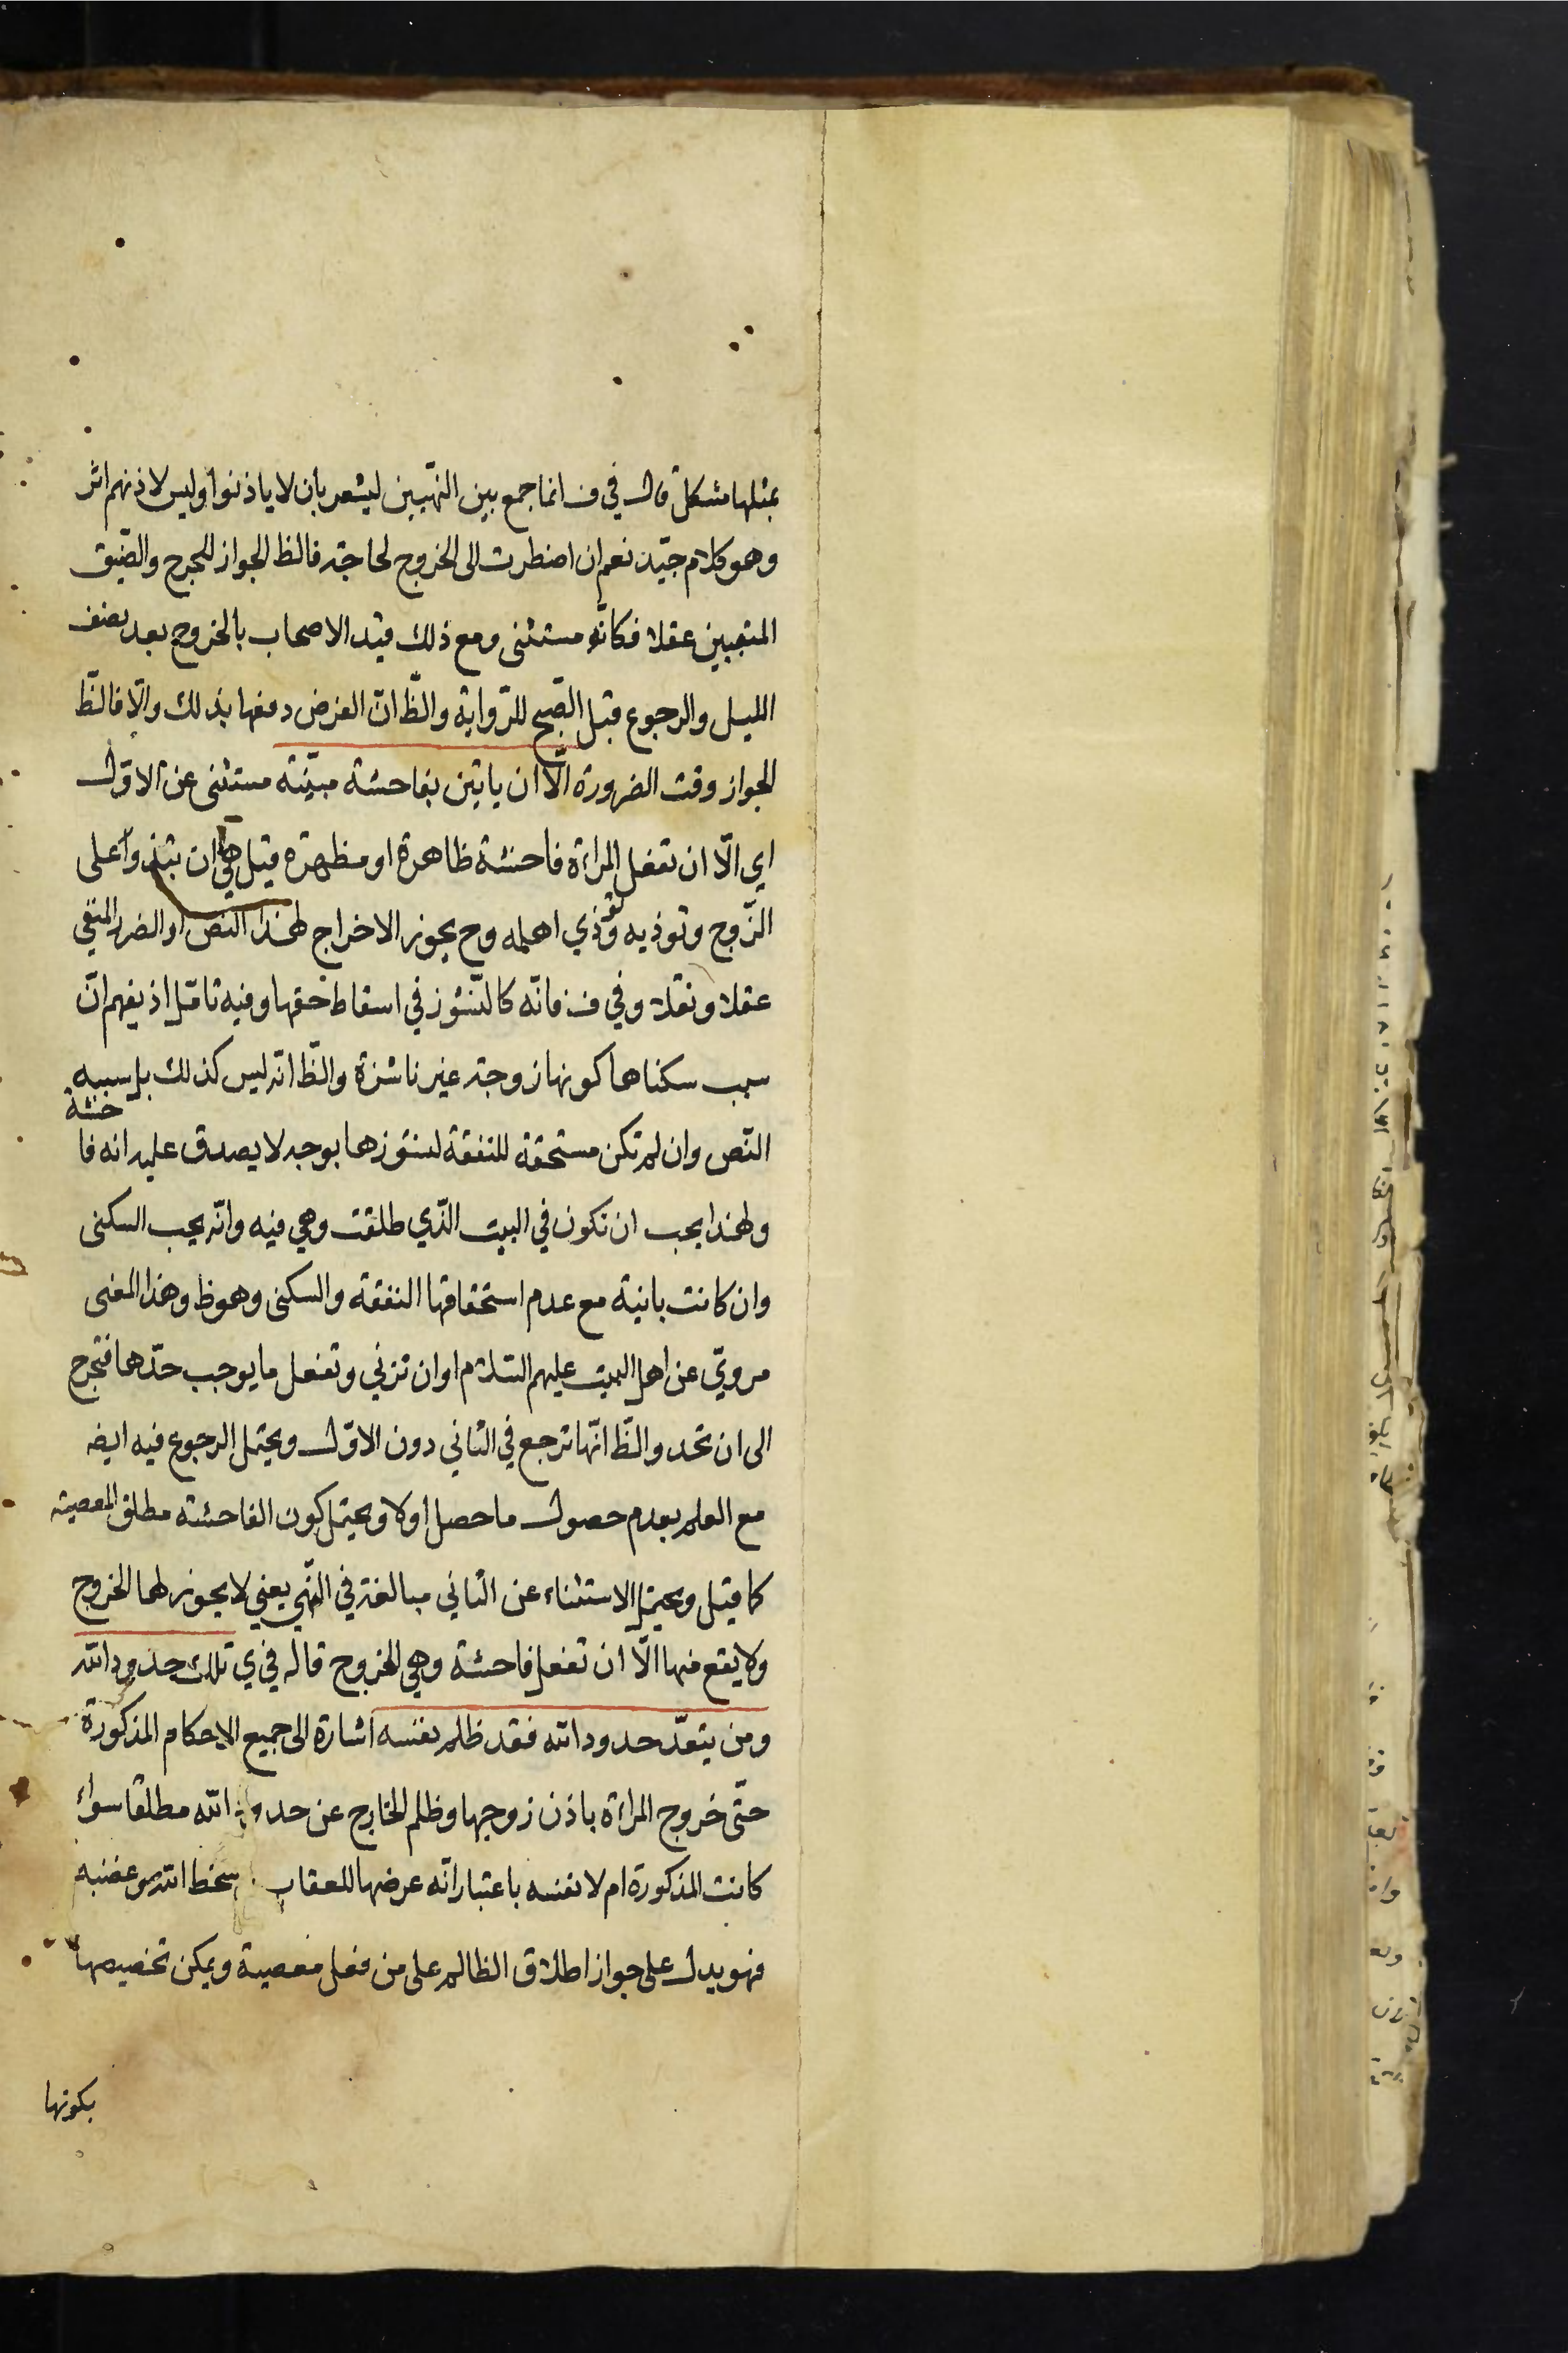 بمثلها مشكل قال في ف انما جمع بين النهيين ليشعر بان لا ياذنوا وليس لاذنهم اثر
وهو كلام جيّد نعم ان اضطرت الى الخروج لحاجة فالظ الجواز للحرج والضّيق
المنفيين عقلا فكانّه مستثنى ومع ذلك قيّد الاصحاب بالخروج بعد نصف
الليل والرجوع قبل الصّبح للرّواية والظّ انّ الغرض دفعها بذلك والّا فالظّ
الجواز وقت الضرورة الّا ان ياتين بفاحشة مبيّنة مستثنى عن الاوّل
اي الّا ان تفعل المراة فاحشة ظاهرة او مظهرة قيل هي ان تبذوا على
الزّوج وتوذيه وتوذي اهله وح يجوز الاخراج لهذا النص او الضرر المنفي
عقلا ونقلا وفي ف فانّه كالنّشوز في اسقاط حقها وفيه تامّل اذ يفهم انّ
سبب سكناها كونها زوجة غير ناشزة والظّ انّه ليس كذلك بل سببه
النّص وان لم تكن مستحقة للنفقة لنشوزها بوجه لا يصدق عليه انه فا
حشة
ولهذا يجب ان تكون في البيت الّذي طلقت وهي فيه وانّه يجب السكنى
وان كانت باينة مع عدم استحقاقها النفقة والسكنى وهو ظ وهذا المعنى
مرويّ عن اهل البيت عليهم السّلام او ان تزني وتفعل ما يوجب حدّها فتخرج
الى ان تحد والظّ انّها ترجع في الثاني دون الاوّل ويحتمل الرجوع فيه ايض
مع العلم بعدم حصول ما حصل اولا ويحتمل كون الفاحشة مطلق المعصية
كما قيل ويحتمل الاستثناء عن الثاني مبالغة في النّهي يعني لا يجوز لها الخروج
ولا يقع منها الّا ان تفعل فاحشة وهي الخروج قاله في ي تلك حدود الله
ومن يتعدّ حدود الله فقد ظلم نفسه اشارة الى جميع الاحكام المذكورة
حتّى خروج المراة باذن زوجها وظلم الخارج عن حدود الله مطلقا سواء
كانت المذكورة ام لا نفسه باعتبار انّه عرضها للعقاب سخط الله وغضبه
فهو يدل على جواز اطلاق الظالم على من فعل معصية ويمكن تخصيصها
بكونها